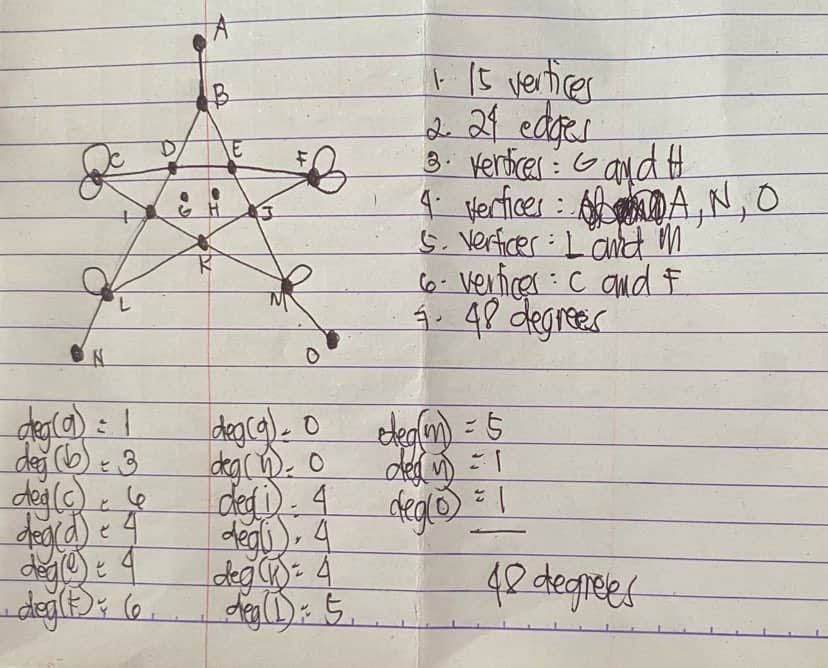 A
B
C
D
E
F
I
G
H
J
K
L
M
N
O
1. 15 vertices
2. 24 edges
3. vertices: G and H
4. vertices: A, N, O
5. vertices: L and M
6. vertices: C and F
7. 48 degrees
deg(a) = 1
deg(b) = 3
deg(c) = 6
deg(d) = 4
deg(e) = 4
deg(f) = 6
deg(g) = 0
deg(h) = 0
deg(i) = 4
deg(j) = 4
deg(k) = 4
deg(l) = 5
deg(m) = 5
deg(n) = 1
deg(o) = 1
48 degrees